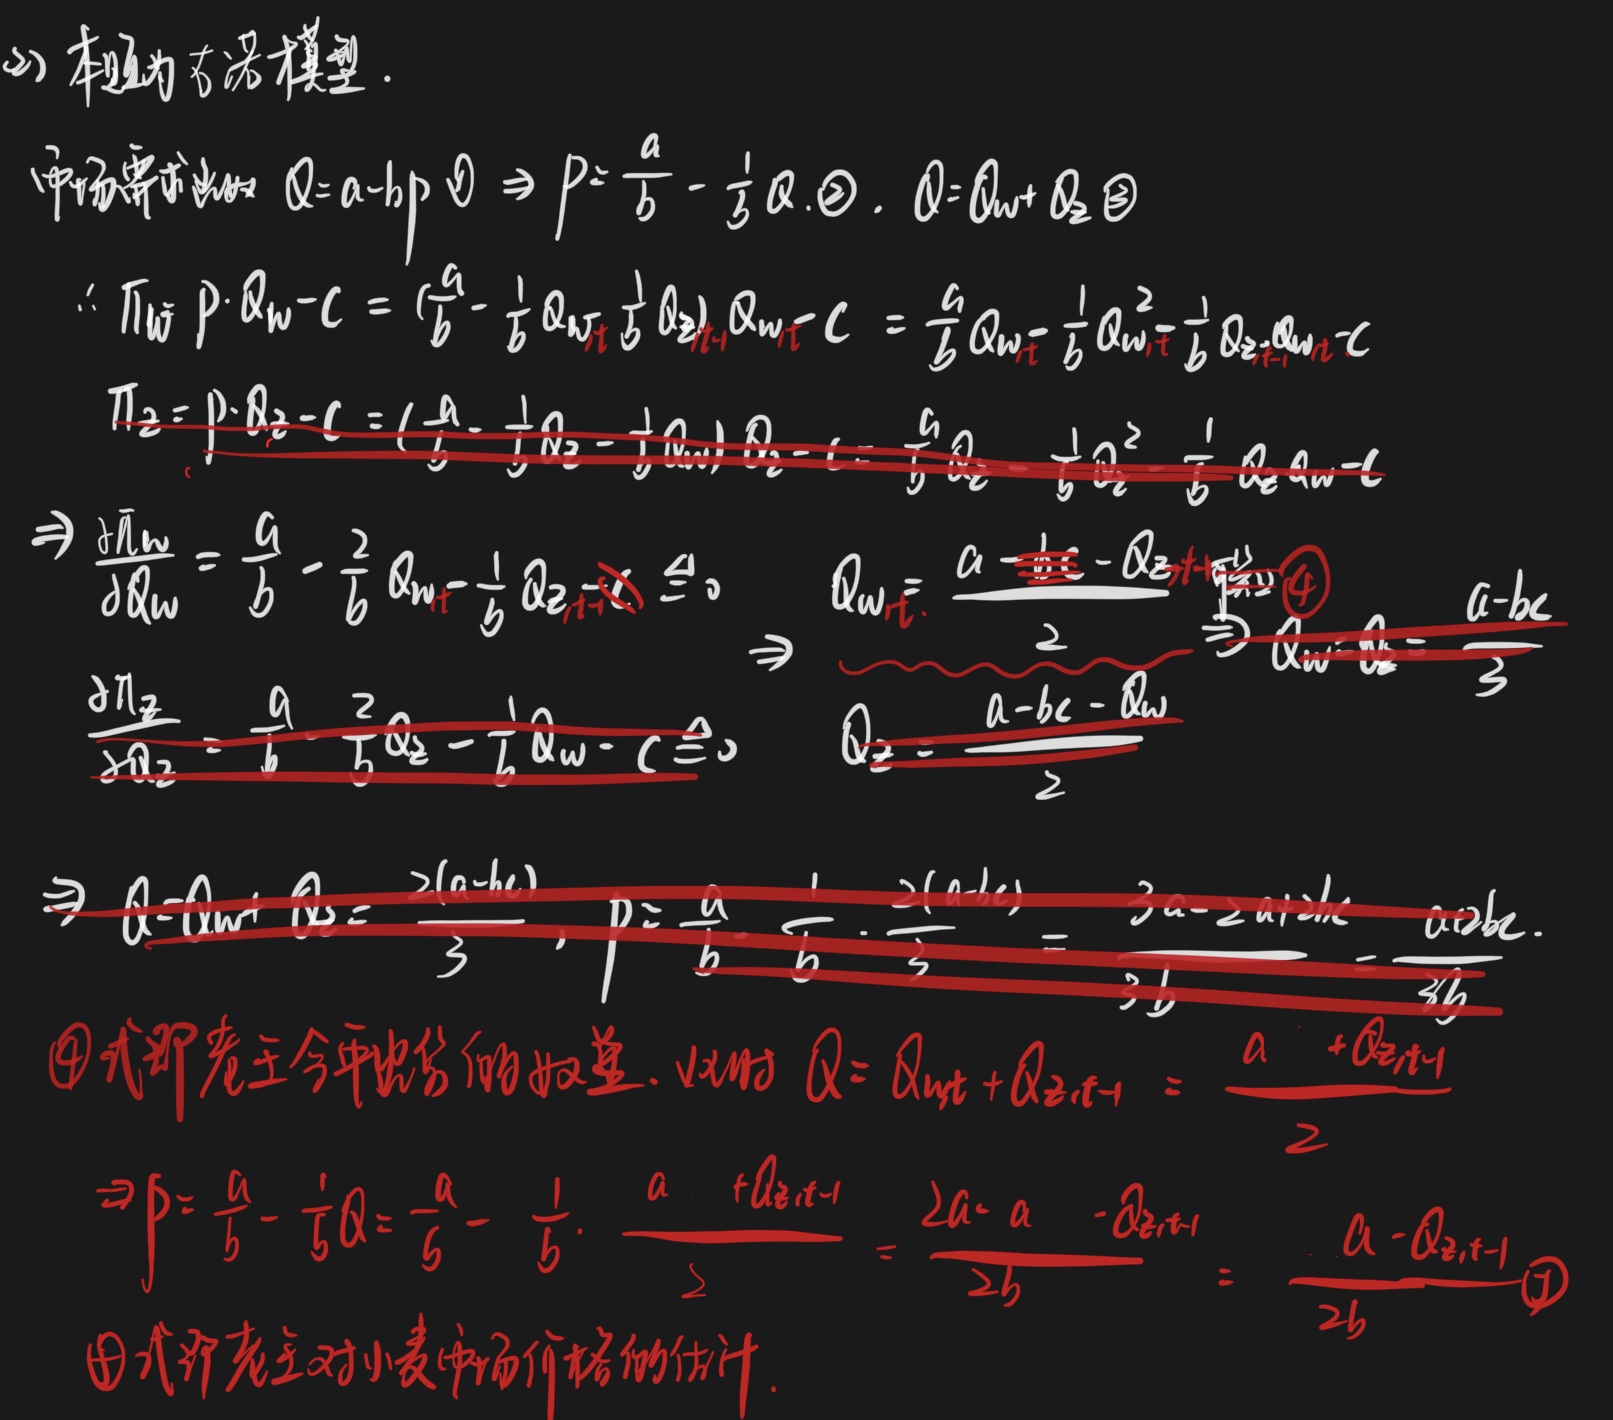 (2) 本题为古诺模型.
市场需求函数 Q=a-bp ① ⇒ p= a/b - 1/b Q. ②. Q=Qw+Qz ③
∴ πw= p·Qw-c = (a/b - 1/b Qw,t - 1/b Qz,t-1) Qw,t - c = a/b Qw,t - 1/b Qw,t² - 1/b Qz,t-1 Qw,t - c
πz = p·Qz-c = (a/b - 1/b Qz - 1/b Qw) Qz - c = a/b Qz - 1/b Qz² - 1/b Qz Qw - c
⇒ ∂πw/∂Qw = a/b - 2/b Qw,t - 1/b Qz,t-1 - c ≜ 0 ⇒ Qw,t = (a - bc - Qz,t-1)/2 ④ ⇒ Qw=Qz= (a-bc)/3
∂πz/∂Qz = a/b - 2/b Qz - 1/b Qw - c ≜ 0 Qz = (a-bc-Qw)/2
⇒ Q=Qw+Qz= 2(a-bc)/3 , p= a/b - 1/b · 2(a-bc)/3 = (3a-2a+2bc)/3b = (a+2bc)/3b .
④式即老王今年出货的数量. 此时 Q= Qw,t + Qz,t-1 = (a +Qz,t-1)/2
⇒ p= a/b - 1/b Q= a/b - 1/b · (a +Qz,t-1)/2 = (2a- a -Qz,t-1)/2b = (a-Qz,t-1)/2b
式即老王对小麦市场价格的估计.